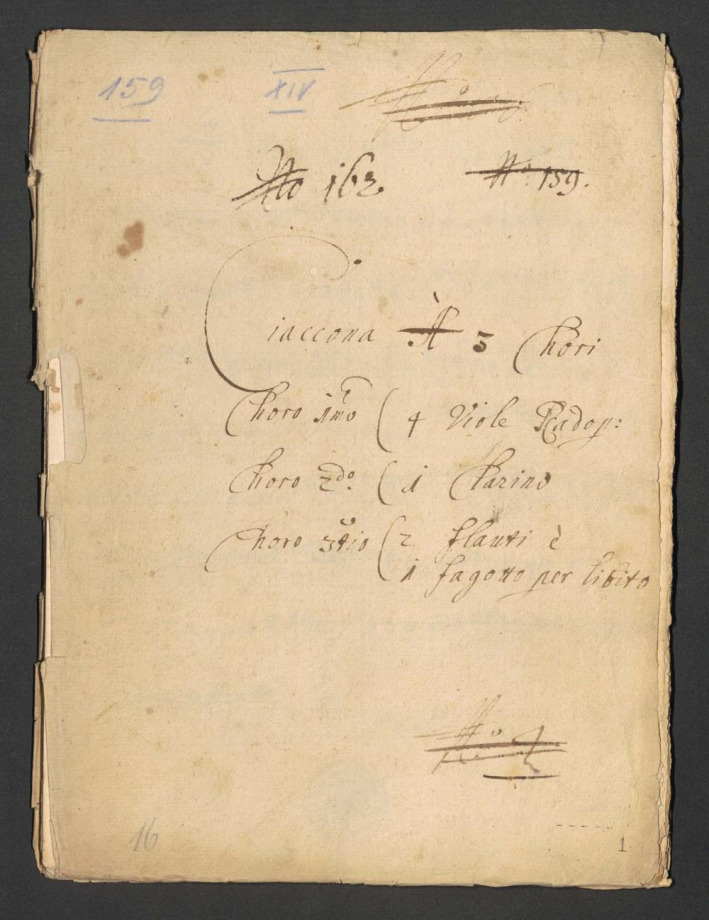 159 XIV
No
No 162 No 159.
Ciaccona À 3 Chori
Choro 1mo ( 4 Viole Radop:
Choro 2do. ( 1 Clarino
Choro 3tio ( 2 flauti è
1 fagotto per libito
No
16
1